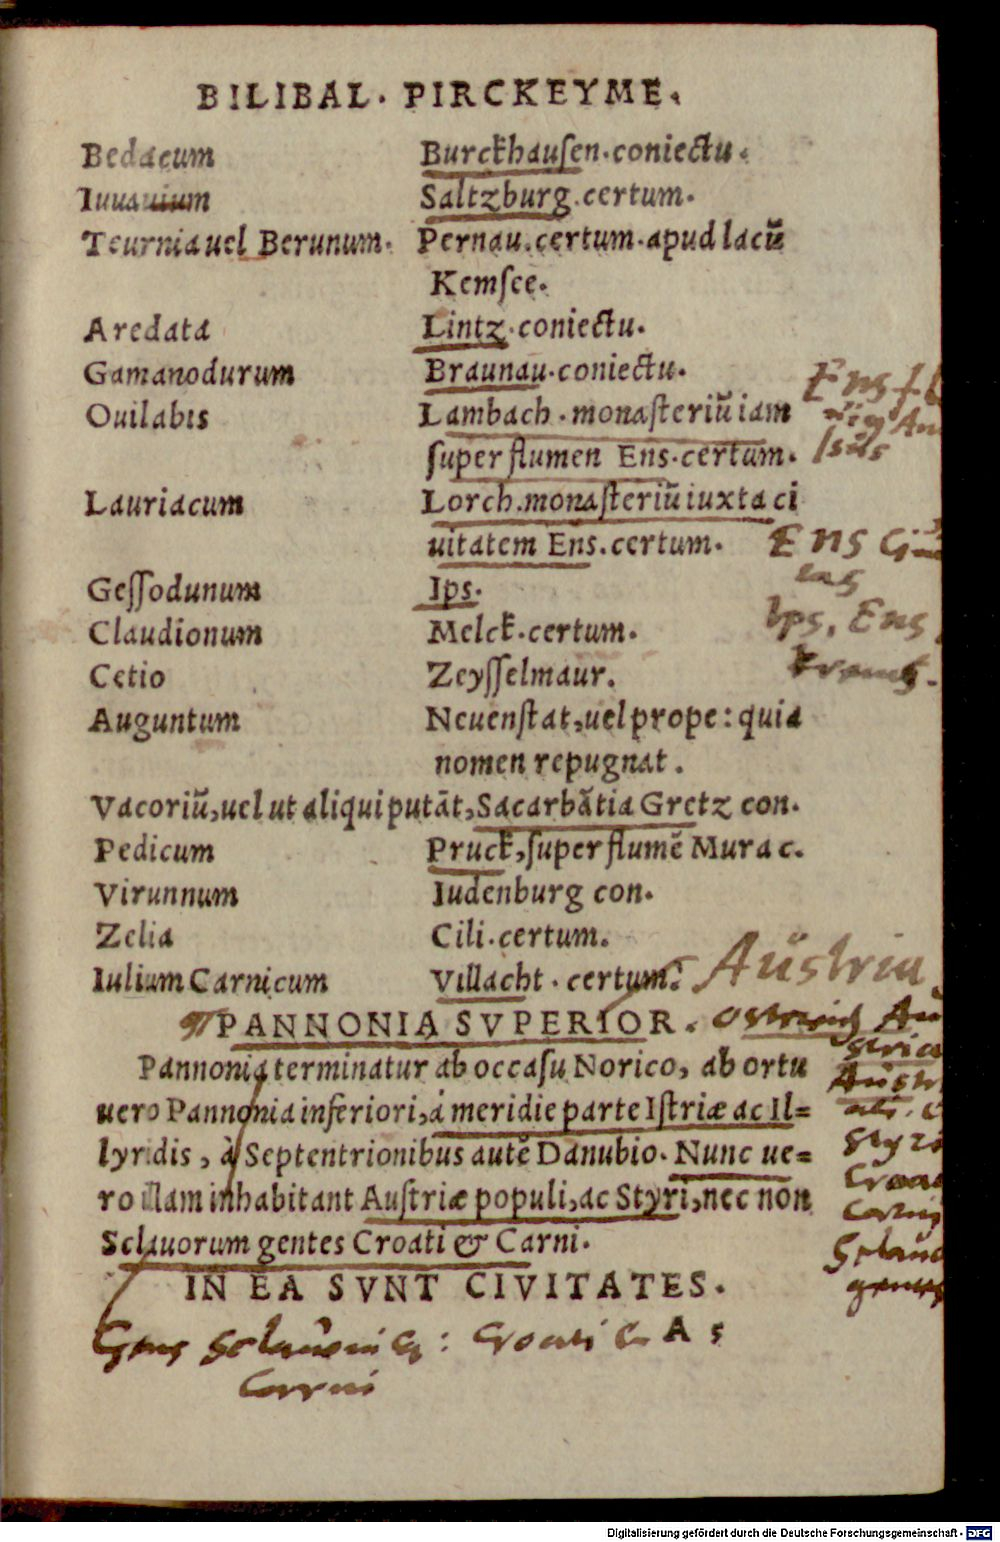 BILIBAL. PIRCKEYME.
Bedacum Burckhauſen. coniectu.
Iuuauium Saltzburg. certum.
Teurnia uel Berunum. Pernau. certum. apud lacũ
Kemſee.
Aredata Lintz. coniectu.
Gamanodurum Braunau. coniectu.
Ouilabis Lambach. monaſteriũ iam
ſuper flumen Ens. certum.
Ens
Lauriacum Lorch. monaſteriũ iuxta ci
uitatem Ens. certum.
Ens
Geſſodunum Ips.
Claudionum Melck. certum.
Ips, Ens
Cetio Zeyſſelmaur.
Auguntum Neuenſtat, uel prope: quia
nomen repugnat.
Vacoriũ, uel ut aliqui putãt, Sacarbãtia Gretz con.
Pedicum Pruck, ſuper flumẽ Mura c.
Virunnum Iudenburg con.
Zelia Cili. certum.
Iulium Carnicum Villacht. certum.
Aŭstria
PANNONIA SVPERIOR.
Pannonia terminatur ab occaſu Norico, ab ortu
uero Pannonia inferiori, à meridie parte Iſtriæ ac Il=
lyridis, à Septentrionibus autẽ Danubio. Nunc ue=
ro illam inhabitant Auſtriæ populi, ac Styri, nec non
Sclauorum gentes Croati & Carni.
gentes
IN EA SVNT CIVITATES.
A 5
Carni